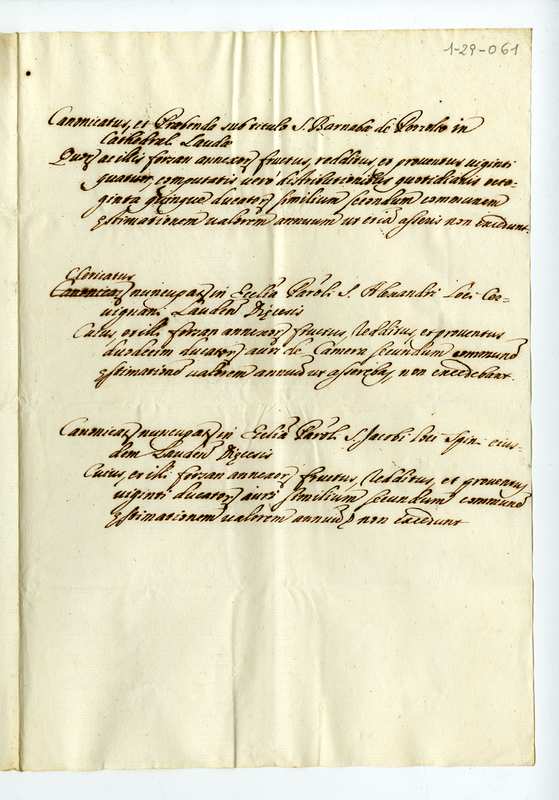 1-29-061
Canonicatus, et Præbenda sub titulo S. Barnabæ de in
Cathedrali Laudẽ
Quorꝝ ac illis forsan annexorꝝ fructus, redditus, et proventus viginti
quatuor, computatis verò distributionibus quotidianis octo-
ginta quinque ducatorꝝ similium secundum communem
ęstimationem valorem annuum ut etiã asseris non excedunt.
Clericatus
Canonicatꝰ nuncupatꝰ in Ecclĩa Paroli S. Alexandri Loci
Lauden Dięcesis
Cuius, et illi forsan annexorꝝ fructus, redditus, et proventus
duodecim ducatorꝝ auri de Camera secundum communẽ
ęstimationẽ valorem annuũ ut non excedebant.
Canonicatꝰ nuncupatꝰ in Ecclĩa Parõl. S. Jacobi loci eius-
dem Lauden Dięcesis
Cuius, et illi forsan annexorꝝ fructus, redditus, et proventus
viginti ducatorꝝ auri similium secundum communẽ
ęstimationem valorem annuũ non excedunt